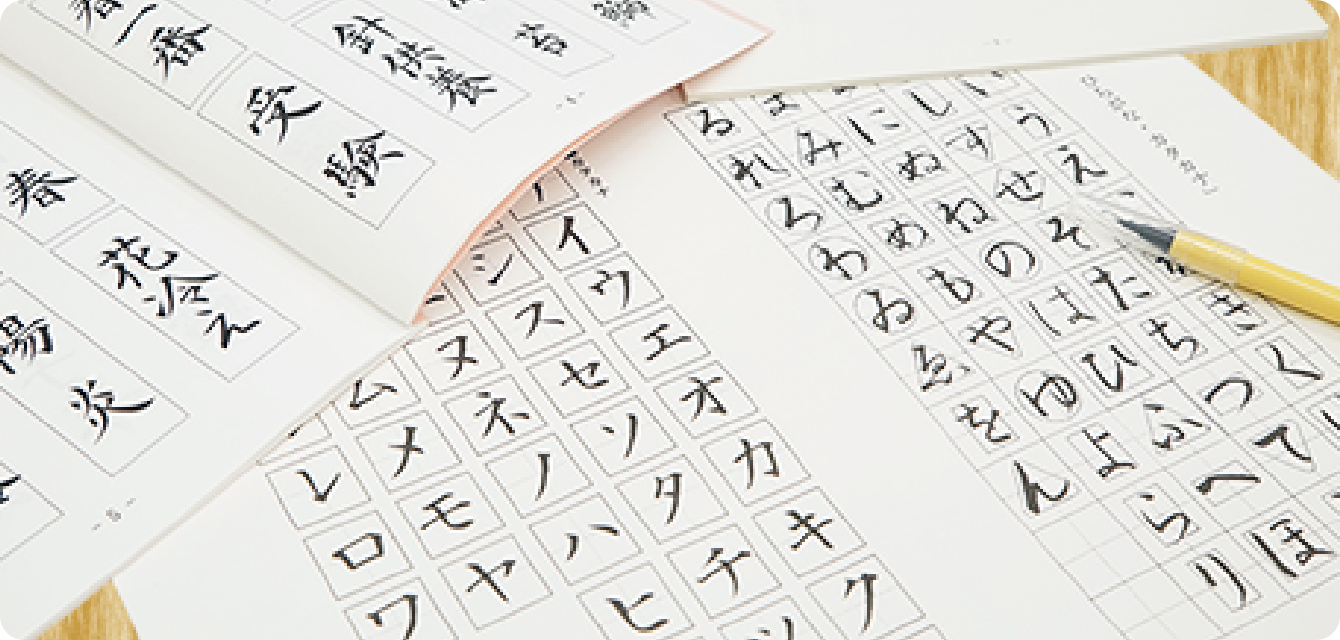 春一番
受験
針供養
春
花冷え
陽炎
イウエオカキク
シスセソタチツ
ヌネノハヒ
ムメモヤ
レロワ
うえ
きく
しすせそたちつて
にぬねのはひふへほ
まみむめもやゆよらり
るれろわゐゑをん